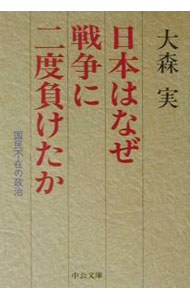 大森 実
日本はなぜ
戦争に
二度負けたか
国民不在の政治
中公文庫